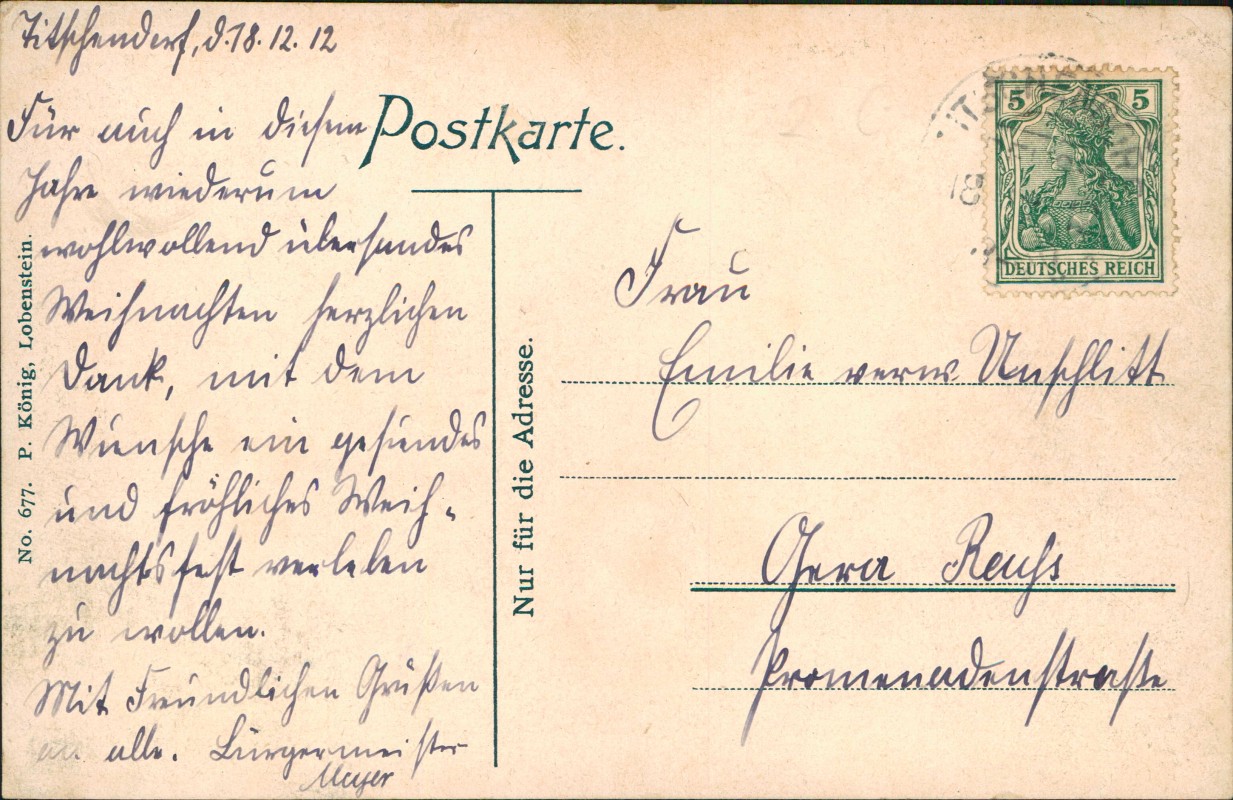 Titschendorf, d. 18. 12. 12
Für auch in diesem
Jahre wiederum
wohlwollend übersandes
Weihnachten herzlichen
Dank, mit dem
Wunsche ein gesundes
und fröhliches Weih-
nachtsfest verleben
zu wollen.
Mit Freundlichen Grüßen
an alle. Bürgermeister
Meyer
Postkarte.
No. 677. P. König, Lobenstein.
Nur für die Adresse.
5 5
DEUTSCHES REICH
Frau
Emilie verw. Unschlitt
Gera Reuß
Promenadenstraße